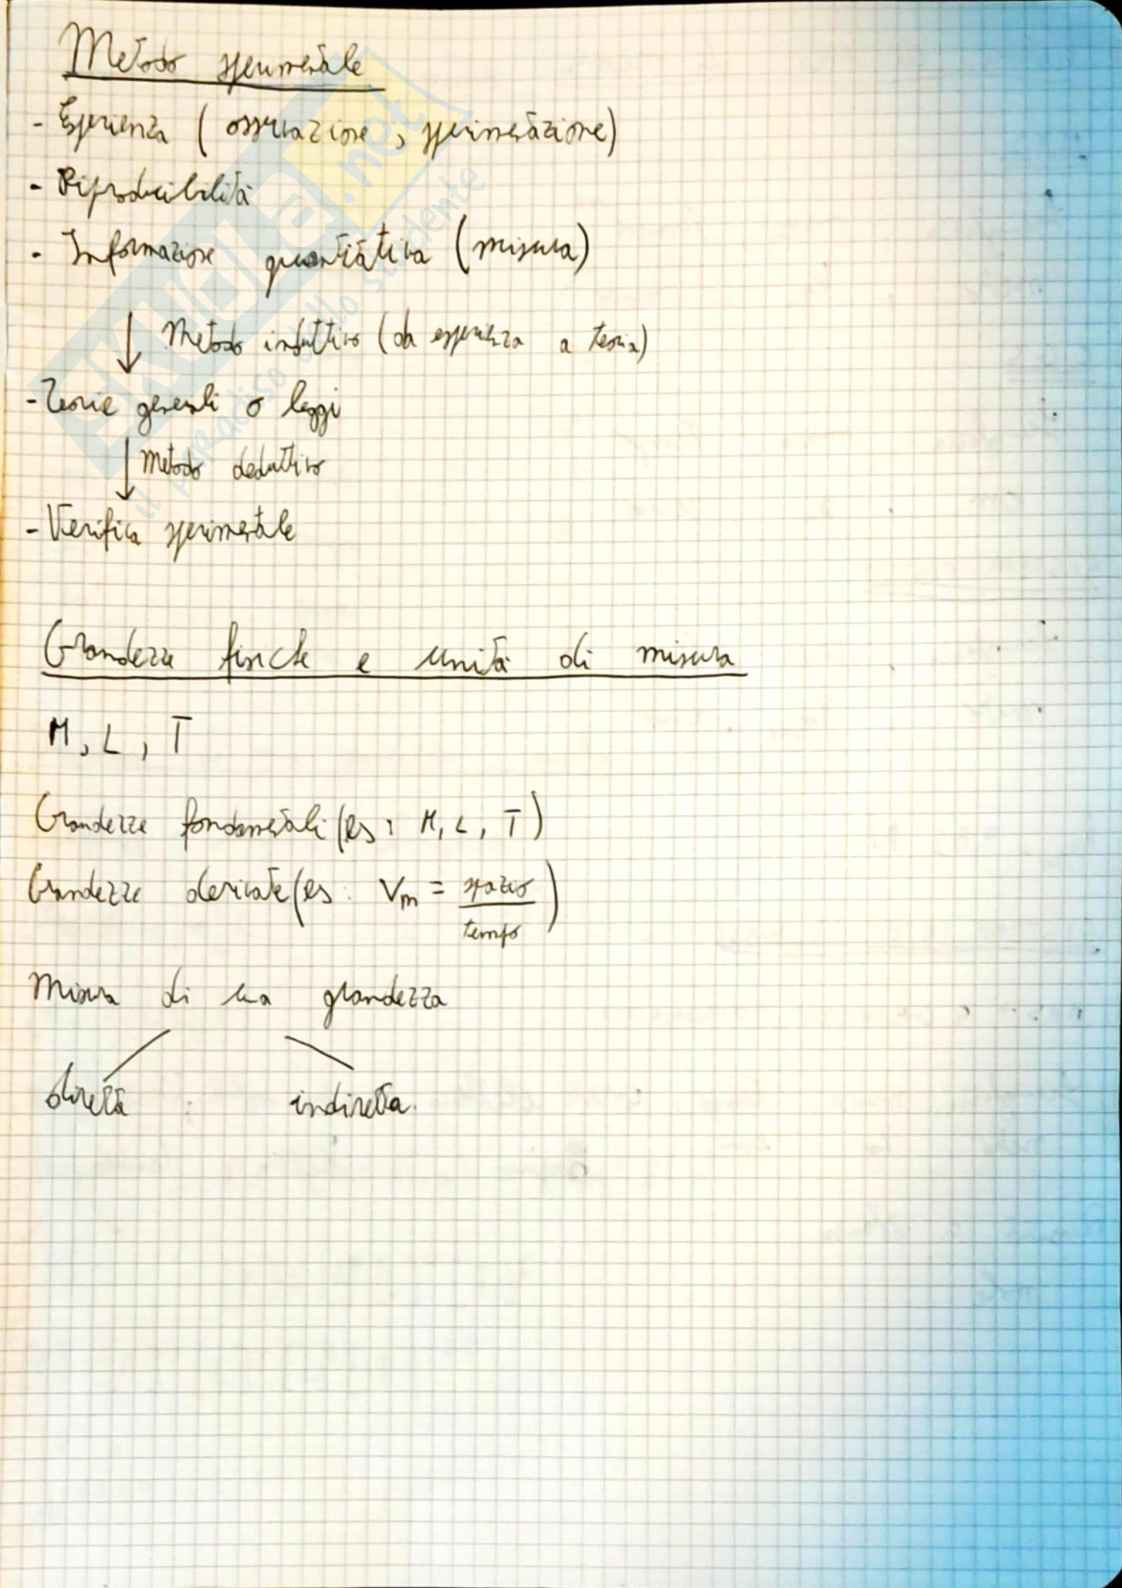 Metodo sperimentale
- Esperienza (osservazione, sperimentazione)
- Riproducibilità
- Informazione quantitativa (misura)
↓ Metodo induttivo (da esperienza a teoria)
- Teorie generali o leggi
↓ Metodo deduttivo
- Verifica sperimentale
Grandezze fisiche e unità di misura
M, L, T
Grandezze fondamentali (es: M, L, T)
Grandezze derivate (es: Vm = spazio / tempo)
Misura di una grandezza
diretta indiretta
SKUOLA.net
il paradiso dello studente